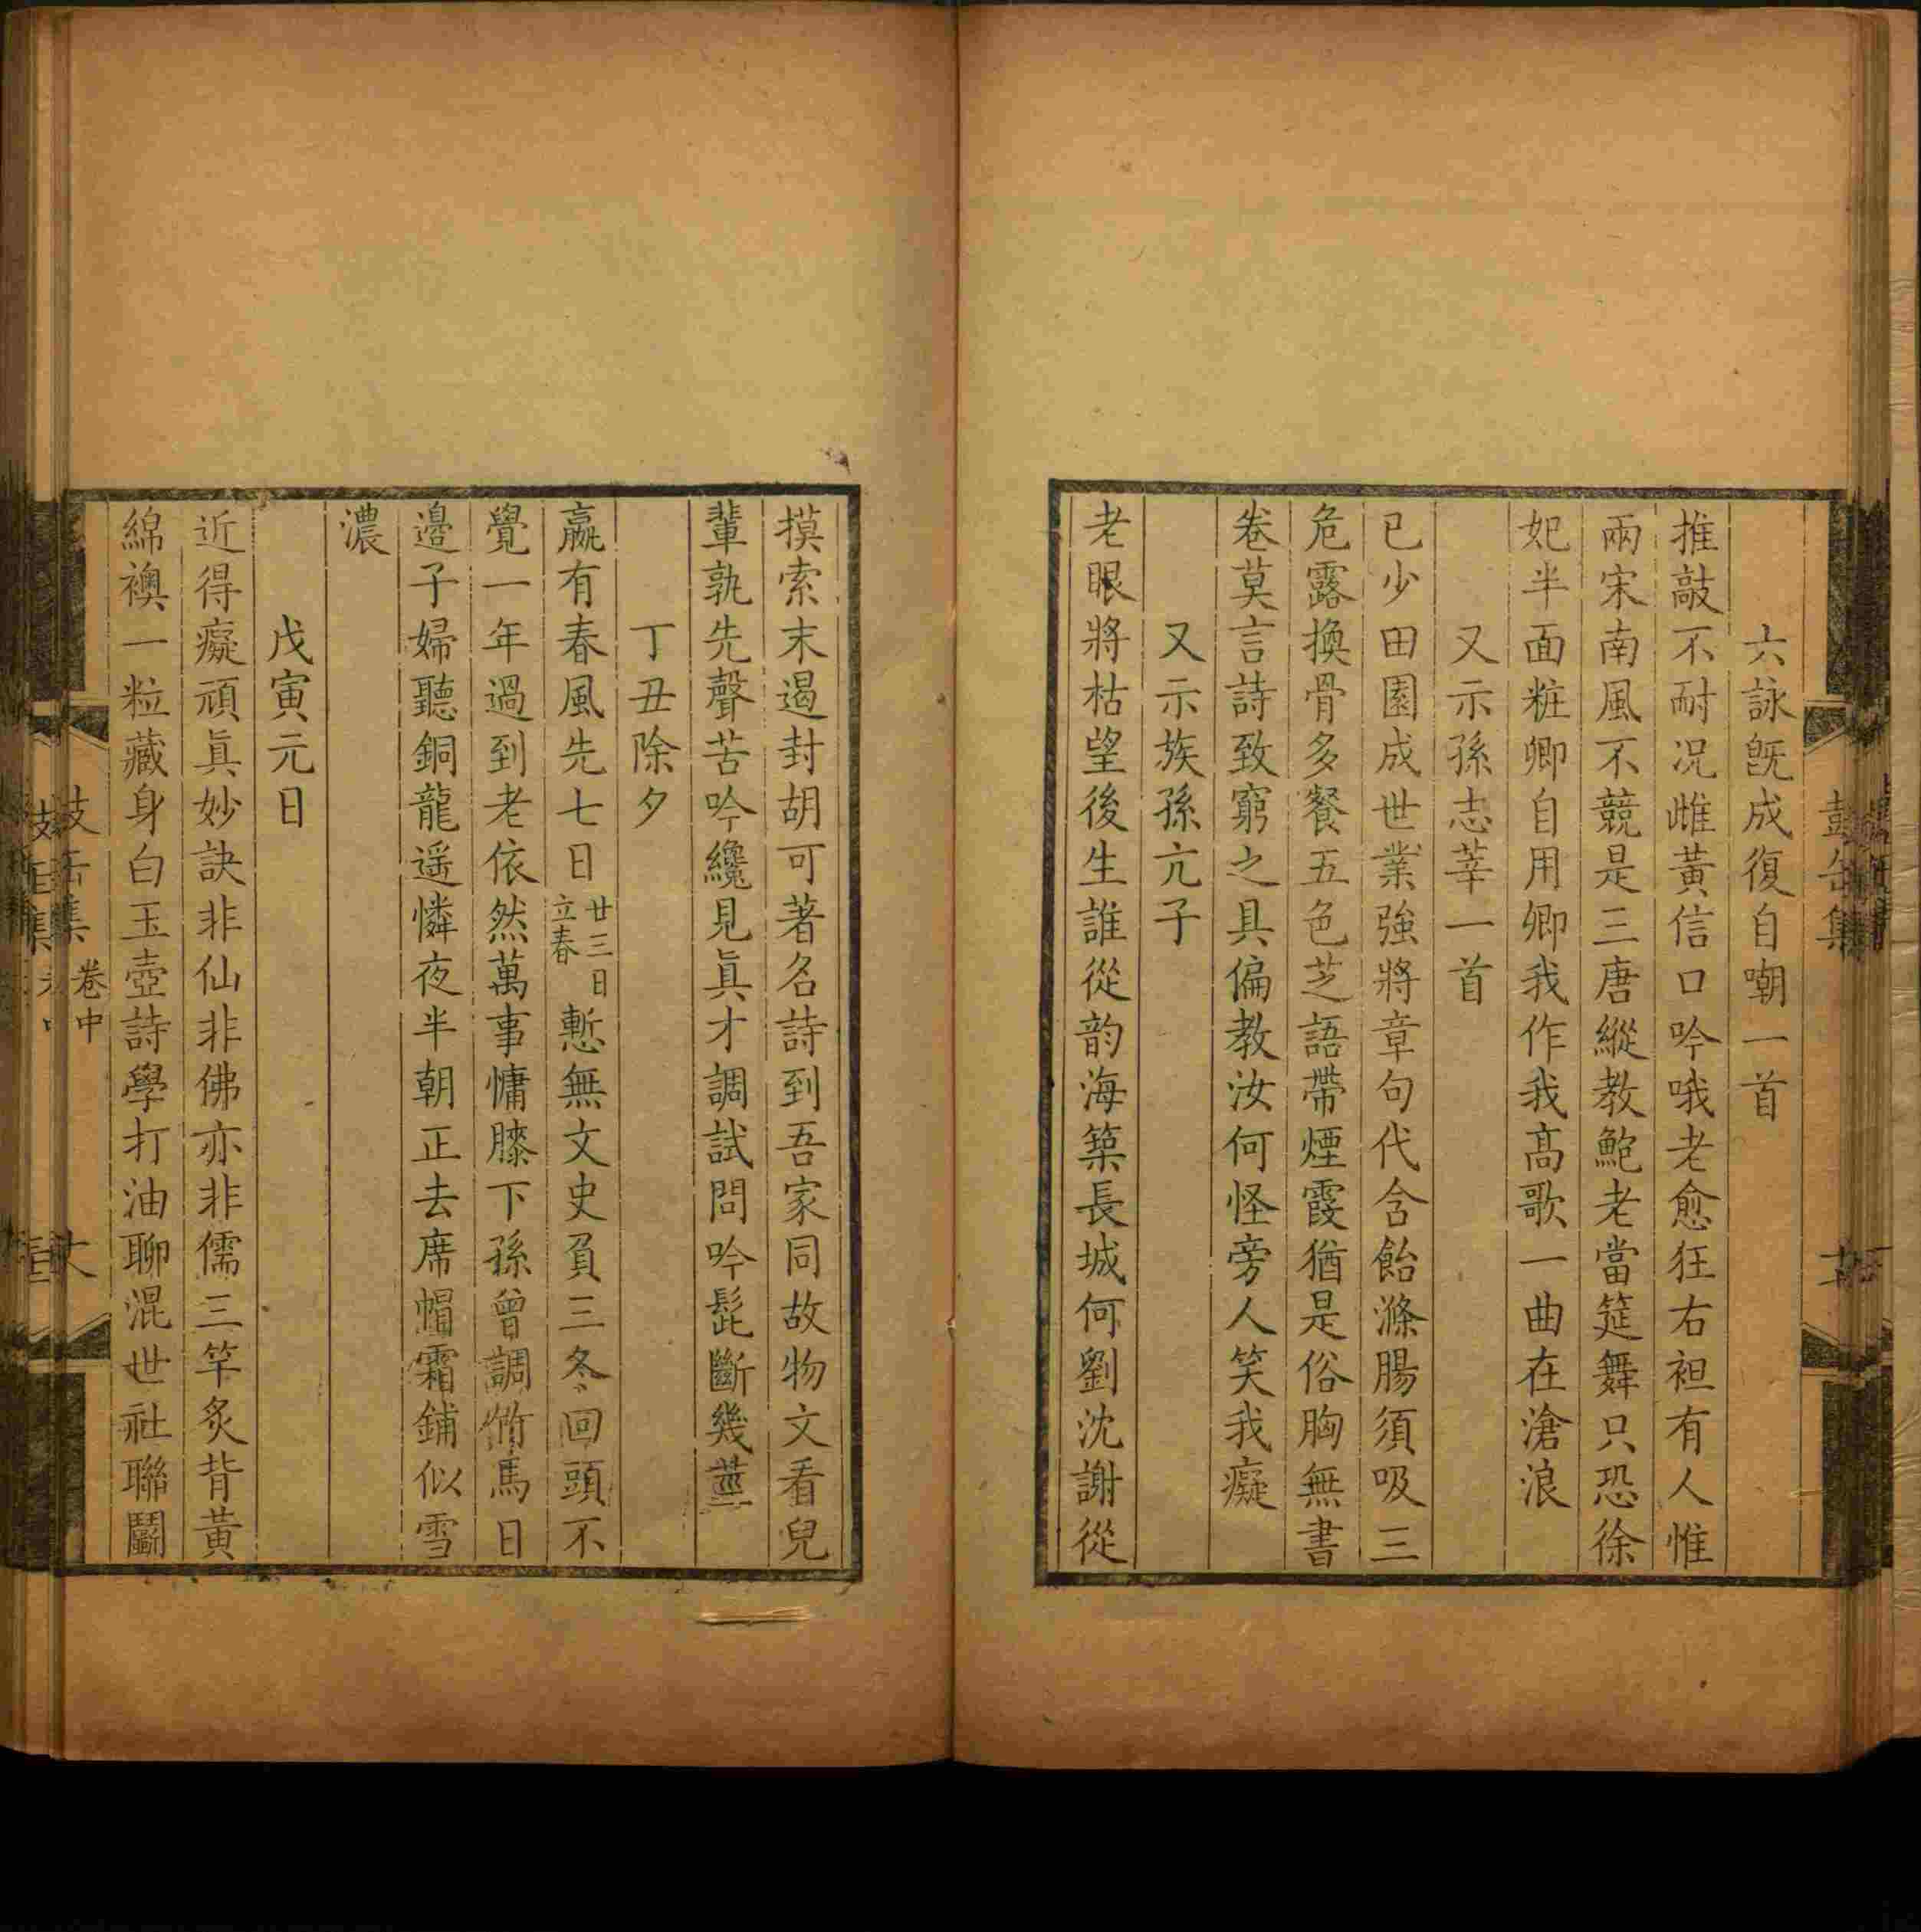 六詠旣成復自嘲一首
推敲不耐况雌黃信口吟哦老愈狂右袒有人惟
兩宋南風不競是三唐縱教鮑老當筵舞只恐徐
妃半面粧卿自用卿我作我高歌一曲在滄浪
又示孫志莘一首
已少田園成世業強將章句代含飴滌腸須吸三
危露換骨多餐五色芝語帶煙霞猶是俗胸無書
卷莫言詩致窮之具偏教汝何怪旁人笑我癡
又示族孫亢子
老眼將枯望後生誰從韵海築長城何劉沈謝從
摸索末遏封胡可著名詩到吾家同故物文看兒
輩孰先聲苦吟纔見眞才調試問吟髭斷幾莖
丁丑除夕
嬴有春風先七日廿三日立春慙無文史負三冬回頭不
覺一年過到老依然萬事慵膝下孫曾調竹馬日
邊子婦聽銅龍遥憐夜半朝正去席帽霜鋪似雪
濃
戊寅元日
近得癡頑眞妙訣非仙非佛亦非儒三竿炙背黃
綿襖一粒藏身白玉壺詩學打油聊混世社聯鬬
卷中